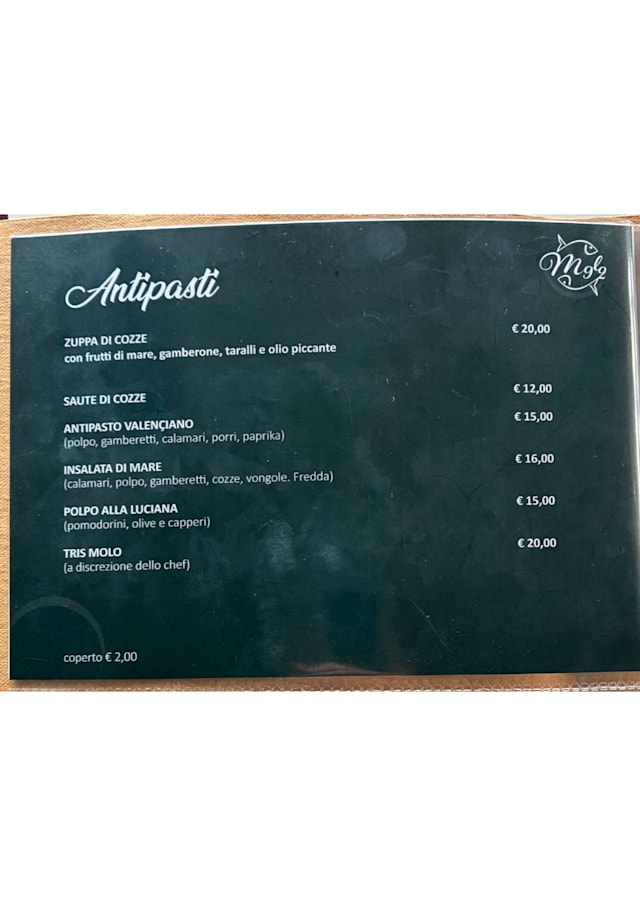 Antipasti
Molo
ZUPPA DI COZZE € 20,00
con frutti di mare, gamberone, taralli e olio piccante
SAUTE DI COZZE € 12,00
ANTIPASTO VALENÇIANO € 15,00
(polpo, gamberetti, calamari, porri, paprika)
INSALATA DI MARE € 16,00
(calamari, polpo, gamberetti, cozze, vongole. Fredda)
POLPO ALLA LUCIANA € 15,00
(pomodorini, olive e capperi)
TRIS MOLO € 20,00
(a discrezione dello chef)
coperto € 2,00